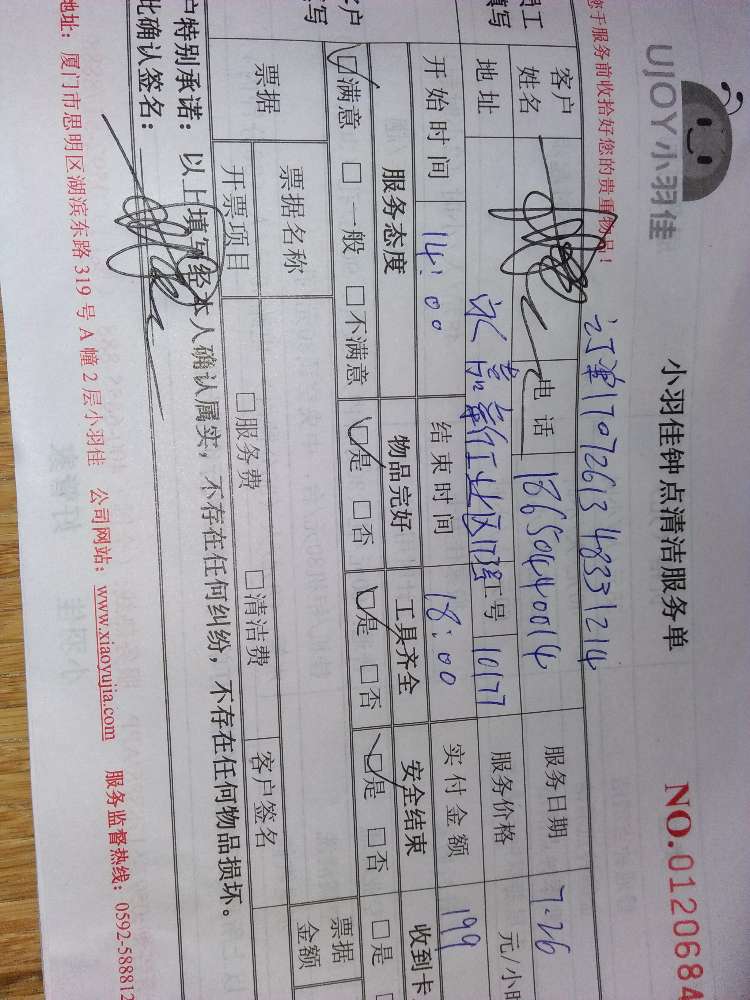 UJOY小羽佳
小羽佳钟点清洁服务单
NO.0120684
订单17072613483331214
您于服务前收拾好您的贵重物品！
员工
填写
客户
姓名
电话
18650440014
服务日期
7.26
地址
工号
10177
服务价格
元/小时
开始时间
14:00
结束时间
18:00
实付金额
199
客户
填写
服务态度
物品完好
工具齐全
安全结束
收到卡
□满意 □一般 □不满意
□是 □否
□是 □否
□是 □否
□是
票据
票据名称
票据
金额
开票项目
□服务费 □清洁费
客户签名
户特别承诺：以上填写经本人确认属实，不存在任何纠纷，不存在任何物品损坏。
此确认签名：
地址：厦门市思明区湖滨东路319号A幢2层小羽佳 公司网站：www.xiaoyujia.com 服务监督热线：0592-588812